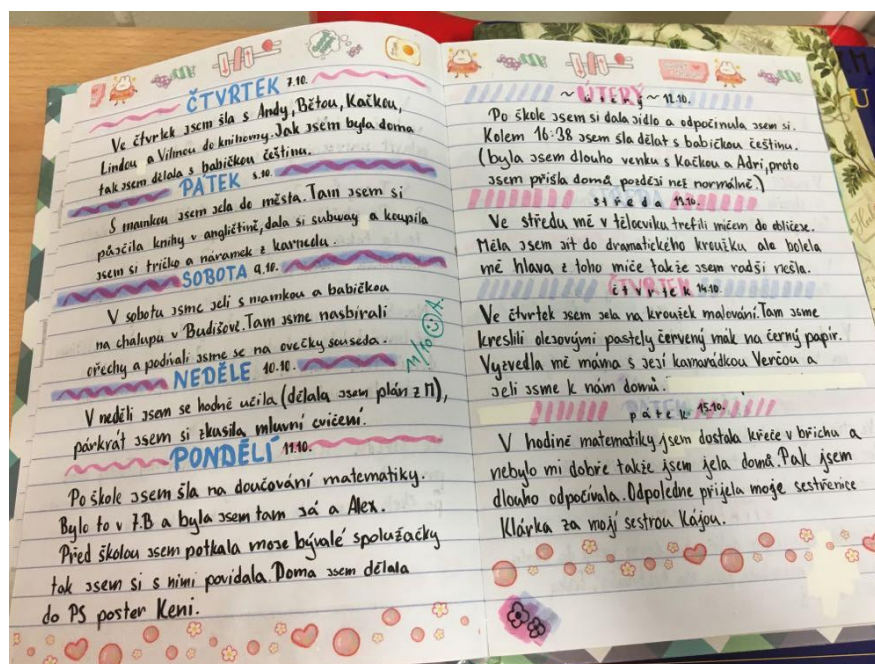 ČTVRTEK 7.10.
Ve čtvrtek jsem šla s Andy, Bětou, Kačkou,
Lindou a Vilmou do knihovny. Jak jsem byla doma
tak jsem dělala s babičkou češtinu.
PÁTEK 8.10.
S mamkou jsem jela do města. Tam jsem si
půjčila knihy v angličtině, dala si subway a koupila
jsem si tričko a náramek z karnedu.
SOBOTA 9.10.
V sobotu jsme jeli s mamkou a babičkou
na chalupu v Budišově. Tam jsme nasbírali
ořechy a podívali jsme se na ovečky souseda.
NEDĚLE 10.10.
V neděli jsem se hodně učila (dělala jsem plán z M),
párkrát jsem si zkusila mluvní cvičení.
PONDĚLÍ 11.10.
Po škole jsem šla na doučování matematiky.
Bylo to v 7.B a byla jsem tam já a Alex.
Před školou jsem potkala moje bývalé spolužačky
tak jsem si s nimi povídala. Doma jsem dělala
do PS poster Keni.
~ ÚTERÝ ~ 12.10.
Po škole jsem si dala jídlo a odpočinula jsem si.
Kolem 16:38 jsem šla dělat s babičkou češtinu.
(byla jsem dlouho venku s Kačkou a Adri, proto
jsem přišla domů později než normálně.)
středa 13.10.
Ve středu mě v tělocviku trefili míčem do obličeje.
Měla jsem jít do dramatického kroužku ale bolela
mě hlava z toho míče takže jsem radši nešla.
čtvrtek 14.10.
Ve čtvrtek jsem jela na kroužek malování. Tam jsme
kreslili olejovými pastely červený mák na černý papír.
Vyzvedla mě máma s její kamarádkou Verčou a
jeli jsme k nám domů.
pátek 15.10.
V hodině matematiky jsem dostala křeče v břichu a
nebylo mi dobře takže jsem jela domů. Pak jsem
dlouho odpočívala. Odpoledne přijela moje sestřenice
Klárka za mojí sestrou Kájou.